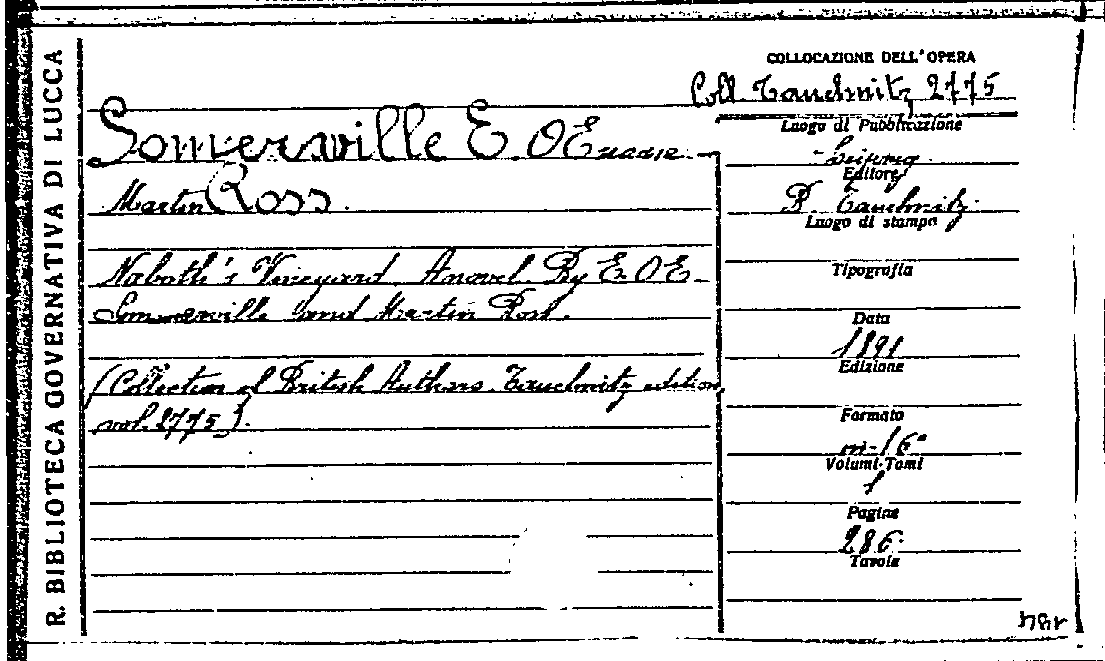 R. BIBLIOTECA GOVERNATIVA DI LUCCA
COLLOCAZIONE DELL'OPERA
Coll. Tauchnitz 2775
Somerville E. OE
Martin Ross.
Naboth's Vineyard. A novel. By E. OE.
Sommerville and Martin Ross.
(Collection of British Authors. Tauchnitz edition,
vol. 2775).
Luogo di Pubblicazione
Leipzig
Editore
B. Tauchnitz.
Luogo di stampa
Tipografia
Data
1891
Edizione
Formato
in-16°
Volumi-Tomi
1
Pagine
286.
Tavole